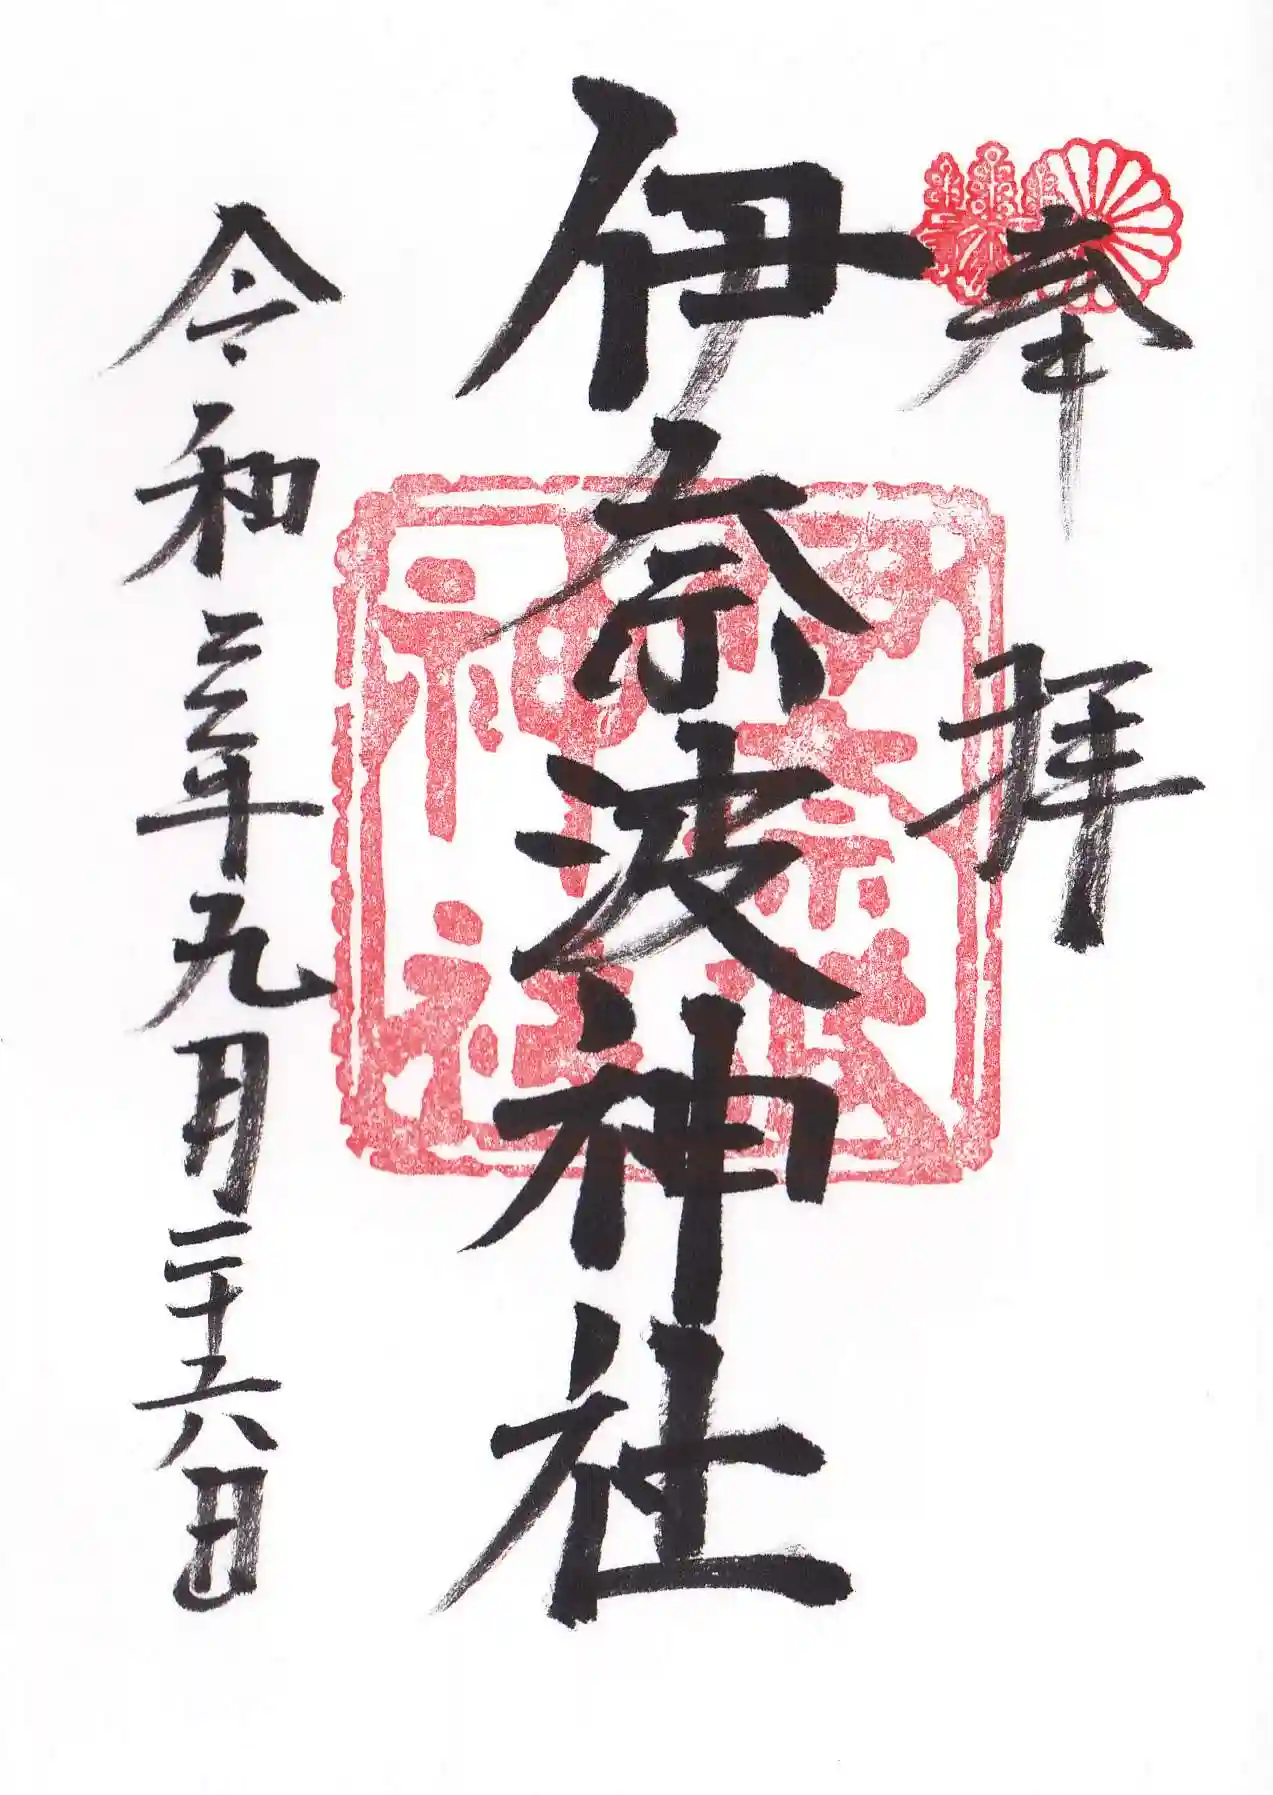 奉拝
伊奈波神社
伊奈波神社
令和三年九月二十六日